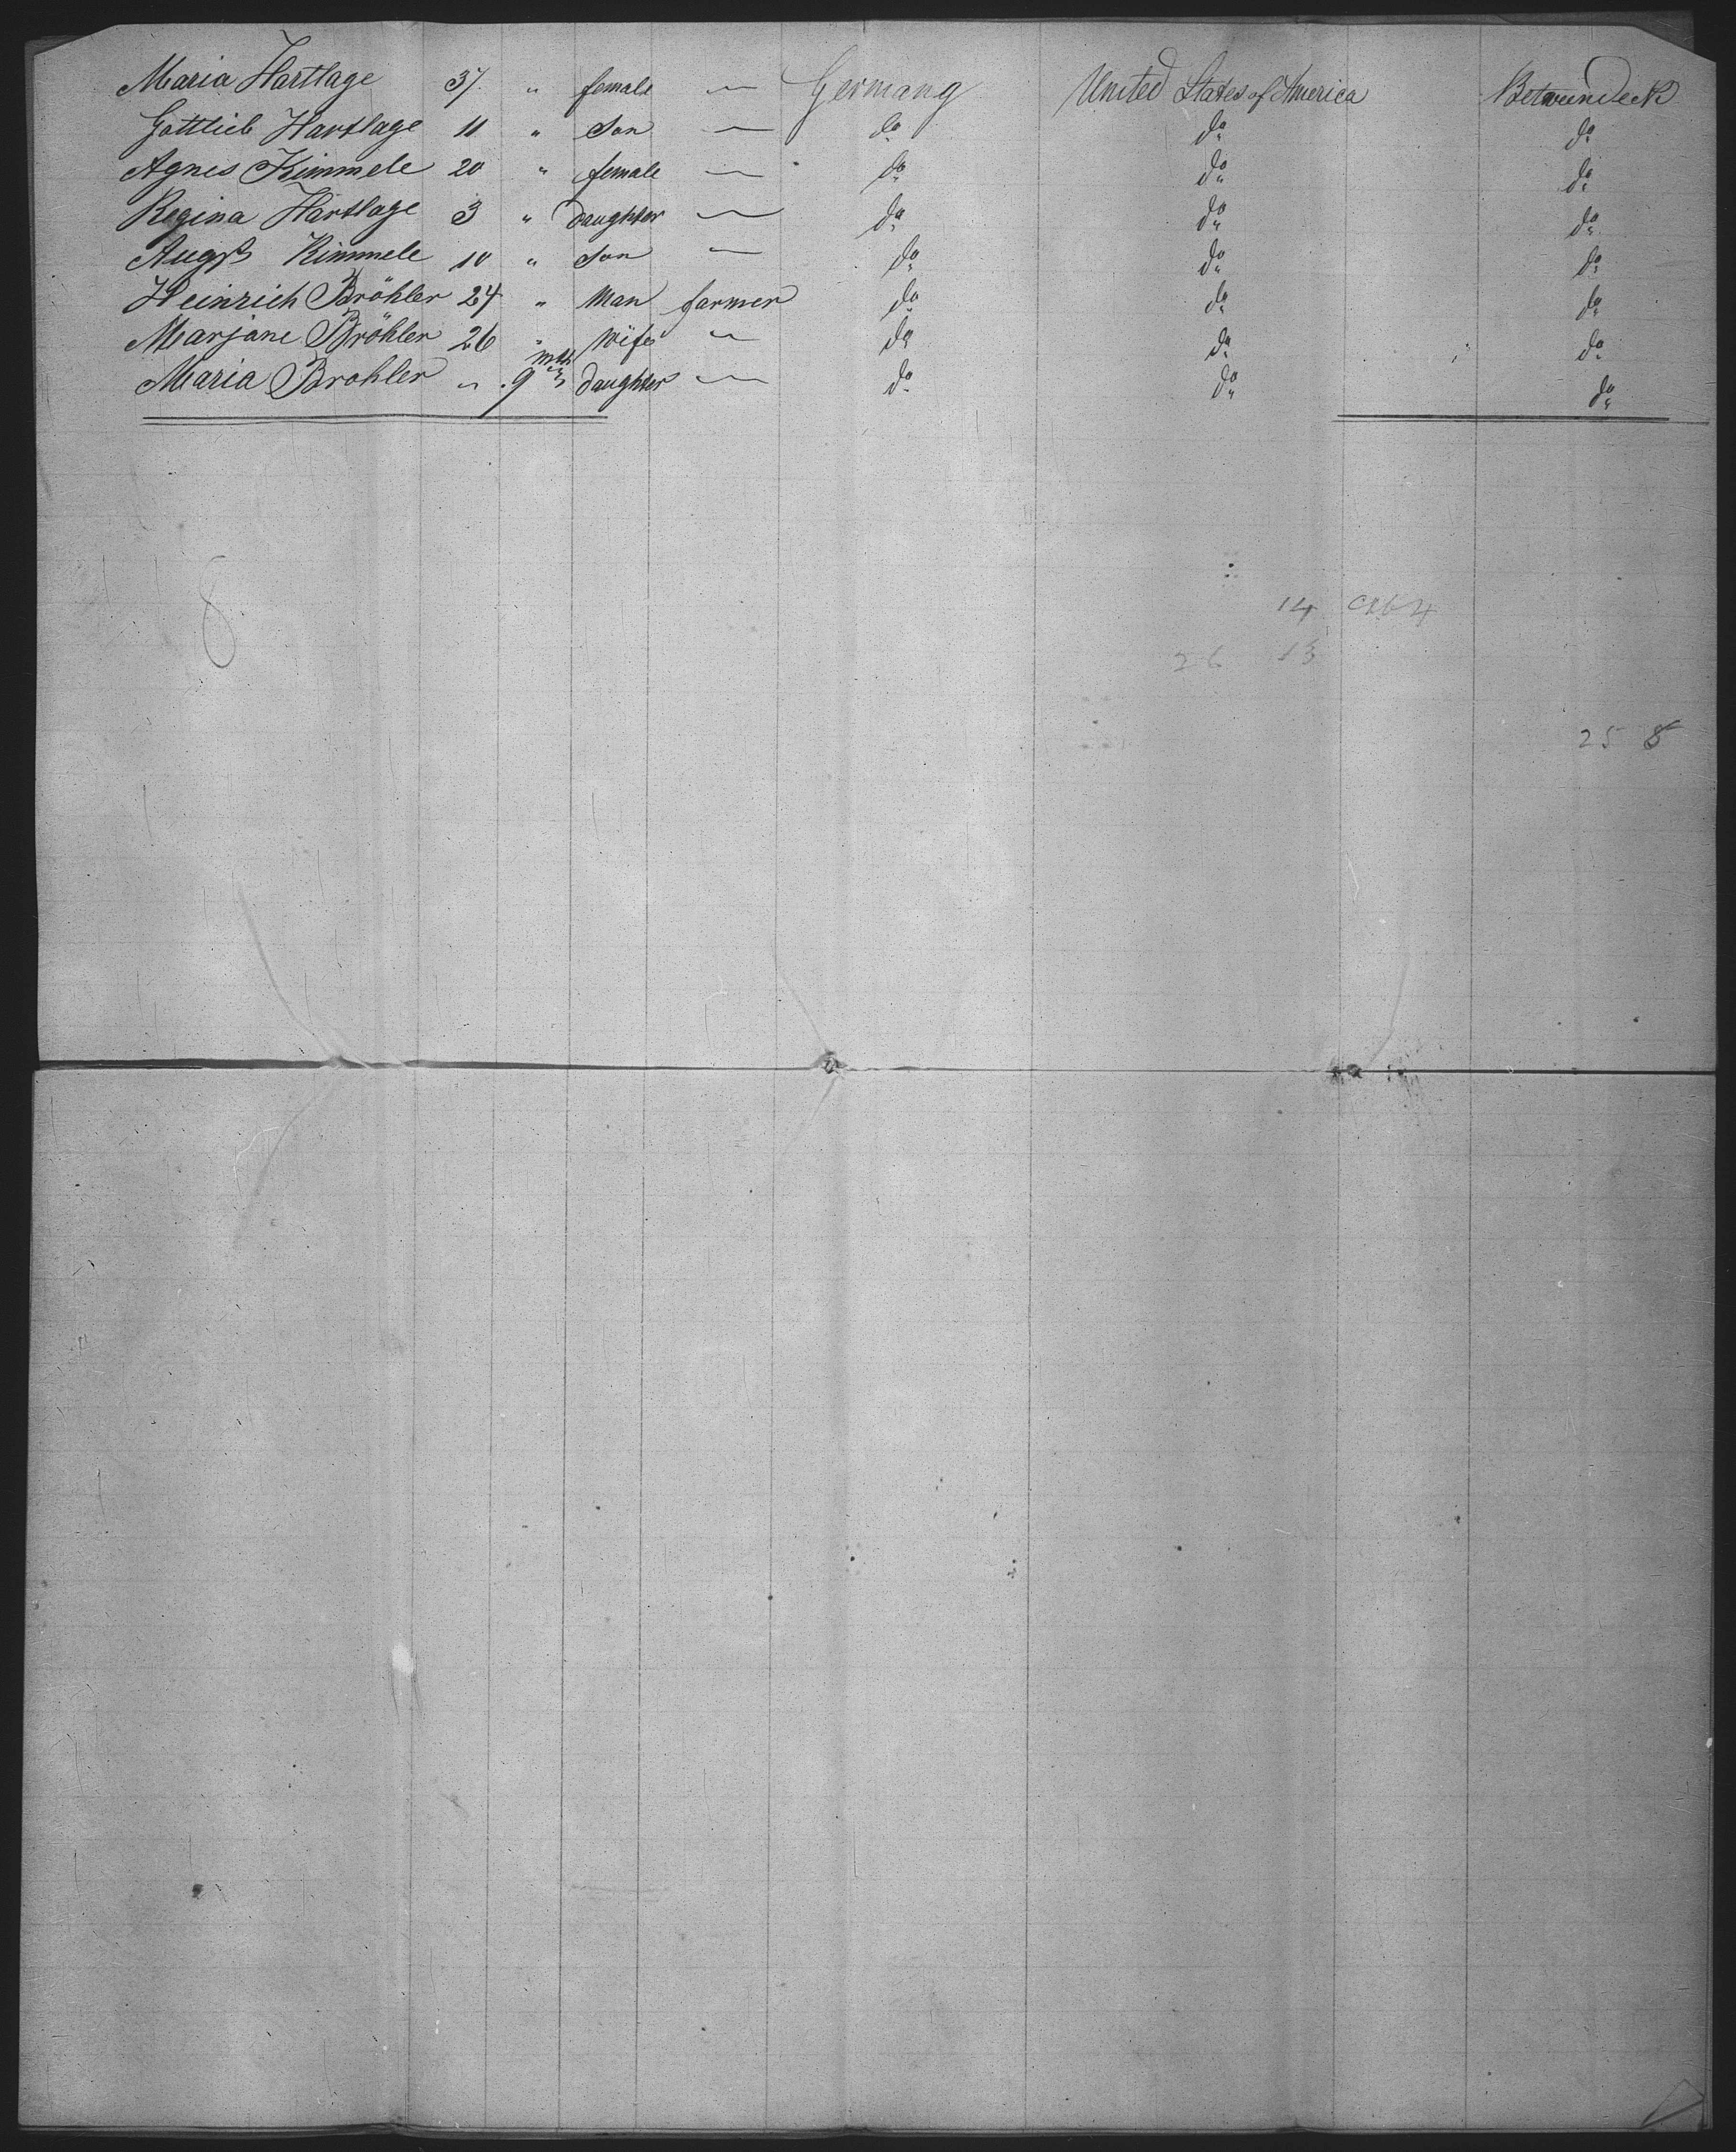 Maria Hartlage 37 " female — Germany United States of America Betweendeck
Gottlieb Hartlage 11 " Son — do do do
Agnes Kimmele 20 " female — do do do
Regina Hartlage 3 " daughter — do do do
August Kimmele 10 " Son — do do do
Heinrich Bröhler 24 " Man farmer do do do
Marjane Bröhler 26 " Wife " do do do
Maria Brohler " 9 mths daughter — do do do
8
14
26 13
25 8